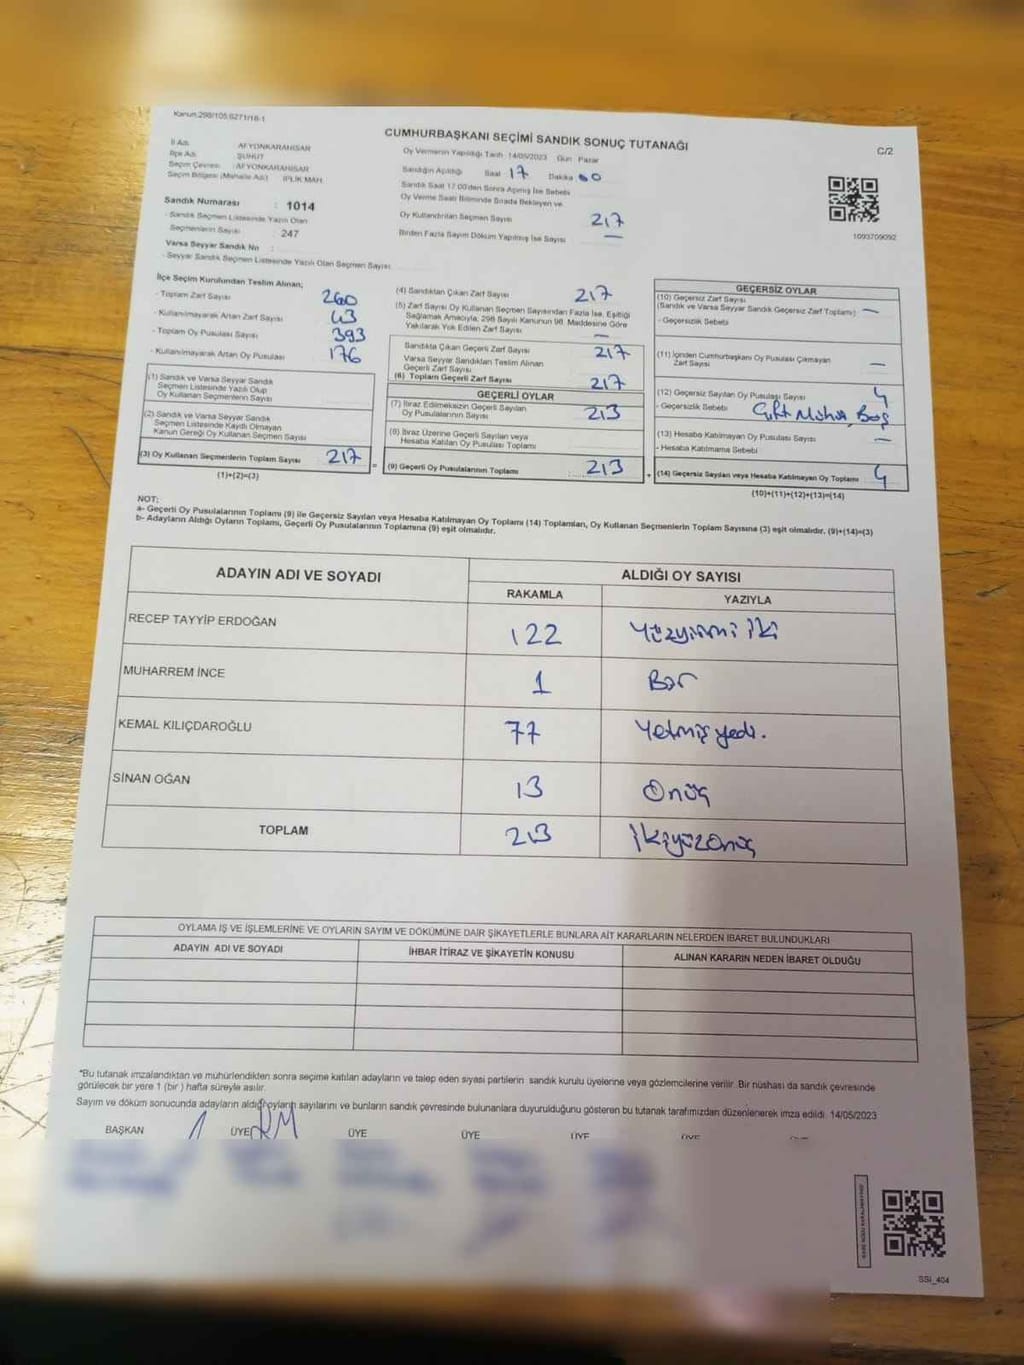 Kanun:298/105,6271/18-1
CUMHURBAŞKANI SEÇİMİ SANDIK SONUÇ TUTANAĞI
C/2
İl Adı : AFYONKARAHİSAR
İlçe Adı : ŞUHUT
Seçim Çevresi : AFYONKARAHİSAR
Seçim Bölgesi (Mahalle Adı) İPLİK MAH.
Sandık Numarası : 1014
- Sandık Seçmen Listesinde Yazılı Olan
Seçmenlerin Sayısı : 247
Varsa Seyyar Sandık No :
- Seyyar Sandık Seçmen Listesinde Yazılı Olan Seçmen Sayısı
Oy Vermenin Yapıldığı Tarih :14/05/2023 Gün : Pazar
Sandığın Açıldığı Saat 17 Dakika 00
Sandık Saat 17:00'den Sonra Açılmış İse Sebebi
Oy Verme Saati Bitiminde Sırada Bekleyen ve
Oy Kullandırılan Seçmen Sayısı 217
Birden Fazla Sayım Döküm Yapılmış İse Sayısı —
1093709092
İlçe Seçim Kurulundan Teslim Alınan;
- Toplam Zarf Sayısı 260
- Kullanılmayarak Artan Zarf Sayısı 43
- Toplam Oy Pusulası Sayısı 393
- Kullanılmayarak Artan Oy Pusulası 176
(1) Sandık ve Varsa Seyyar Sandık
Seçmen Listesinde Yazılı Olup
Oy Kullanan Seçmenlerin Sayısı
(2) Sandık ve Varsa Seyyar Sandık
Seçmen Listesinde Kaydı Olmayan
Kanun Gereği Oy Kullanan Seçmen Sayısı
(3) Oy Kullanan Seçmenlerin Toplam Sayısı 217
(1)+(2)=(3)
(4) Sandıktan Çıkan Zarf Sayısı 217
(5) Zarf Sayısı Oy Kullanan Seçmen Sayısından Fazla İse, Eşitliği
Sağlamak Amacıyla, 298 Sayılı Kanunun 98. Maddesine Göre
Yakılarak Yok Edilen Zarf Sayısı —
Sandıkta Çıkan Geçerli Zarf Sayısı 217
Varsa Seyyar Sandıktan Teslim Alınan
Geçerli Zarf Sayısı
(6) Toplam Geçerli Zarf Sayısı 217
GEÇERLİ OYLAR
(7) İtiraz Edilmeksizin Geçerli Sayılan
Oy Pusulalarının Sayısı 213
(8) İtiraz Üzerine Geçerli Sayılan veya
Hesaba Katılan Oy Pusulası Toplamı
= (9) Geçerli Oy Pusulalarının Toplamı 213
GEÇERSİZ OYLAR
(10) Geçersiz Zarf Sayısı
(Sandık ve Varsa Seyyar Sandık Geçersiz Zarf Toplamı) —
- Geçersizlik Sebebi
(11) İçinden Cumhurbaşkanı Oy Pusulası Çıkmayan
Zarf Sayısı —
(12) Geçersiz Sayılan Oy Pusulası Sayısı 4
- Geçersizlik Sebebi Çift Mühür, Boş
(13) Hesaba Katılmayan Oy Pusulası Sayısı —
- Hesaba Katılmama Sebebi
+ (14) Geçersiz Sayılan veya Hesaba Katılmayan Oy Toplamı 4
(10)+(11)+(12)+(13)=(14)
NOT:
a- Geçerli Oy Pusulalarının Toplamı (9) ile Geçersiz Sayılan veya Hesaba Katılmayan Oy Toplamı (14) Toplamları, Oy Kullanan Seçmenlerin Toplam Sayısına (3) eşit olmalıdır. (9)+(14)=(3)
b- Adayların Aldığı Oyların Toplamı, Geçerli Oy Pusulalarının Toplamına (9) eşit olmalıdır.
ADAYIN ADI VE SOYADI
ALDIĞI OY SAYISI
RAKAMLA YAZIYLA
RECEP TAYYİP ERDOĞAN 122 Yüzyirmi iki
MUHARREM İNCE 1 Bir
KEMAL KILIÇDAROĞLU 77 Yetmiş yedi.
SİNAN OĞAN 13 Onüç
TOPLAM 213 İkiyüzonüç
OYLAMA İŞ VE İŞLEMLERİNE VE OYLARIN SAYIM VE DÖKÜMÜNE DAİR ŞİKAYETLERLE BUNLARA AİT KARARLARIN NELERDEN İBARET BULUNDUKLARI
ADAYIN ADI VE SOYADI İHBAR İTİRAZ VE ŞİKAYETİN KONUSU ALINAN KARARIN NEDEN İBARET OLDUĞU
*Bu tutanak imzalandıktan ve mühürlendikten sonra seçime katılan adayların ve talep eden siyasi partilerin sandık kurulu üyelerine veya gözlemcilerine verilir. Bir nüshası da sandık çevresinde
görülecek bir yere 1 (bir) hafta süreyle asılır.
Sayım ve döküm sonucunda adayların aldığı oyların sayılarını ve bunların sandık çevresinde bulunanlara duyurulduğunu gösteren bu tutanak tarafımızdan düzenlenerek imza edildi. 14/05/2023
BAŞKAN ÜYE ÜYE ÜYE ÜYE ÜYE
SSİ_404